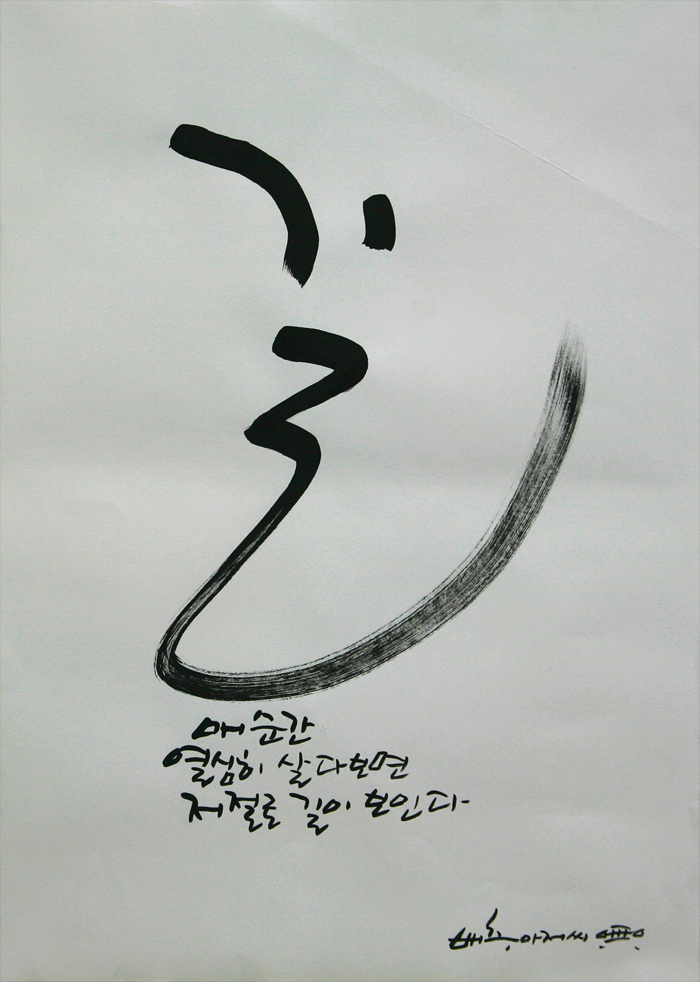 길
매 순간
열심히 살다보면
저절로 길이 보인다
아저씨